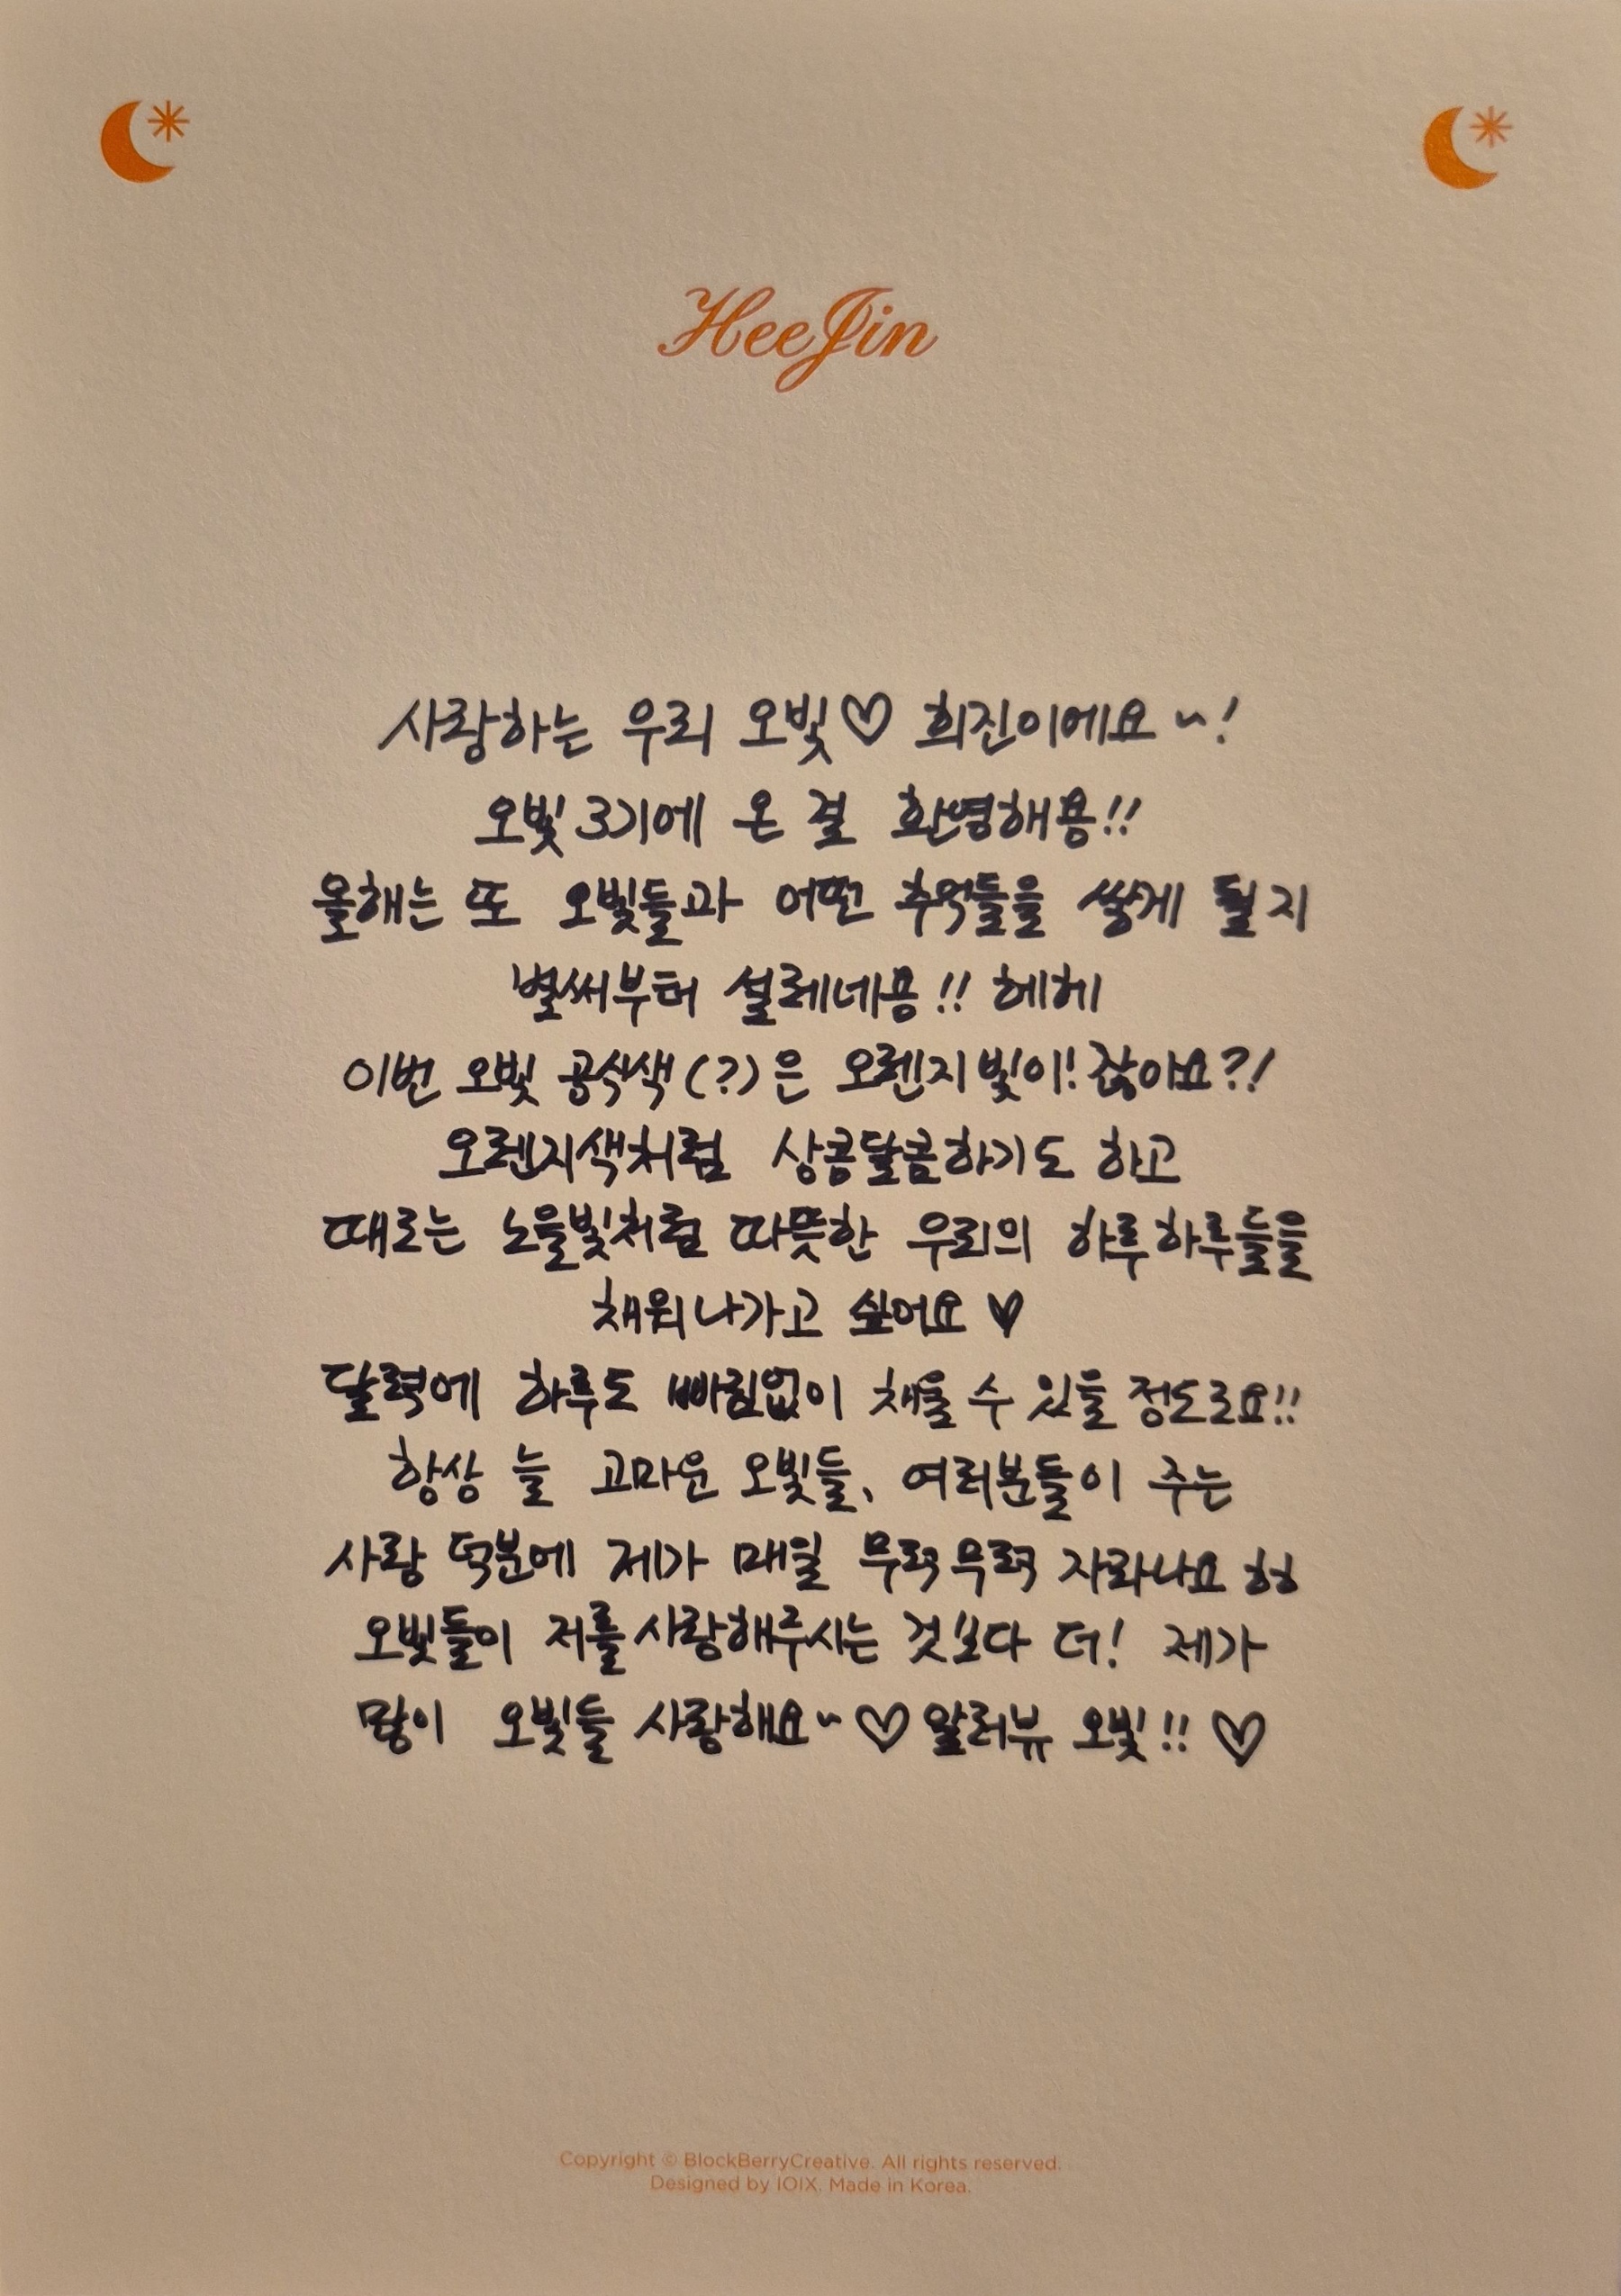 HeeJin
사랑하는 우리 오빛♡ 희진이에요~!
오빛 3기에 온 걸 환영해용!!
올해는 또 오빛들과 어떤 추억들을 쌓게 될지
벌써부터 설레네용!! 헤헤
이번 오빛 공식색(?)은 오렌지빛이! 잖아요?!
오렌지색처럼 상콤달콤하기도 하고
때로는 노을빛처럼 따뜻한 우리의 하루하루들을
채워나가고 싶어요 ♥
달력에 하루도 빠짐없이 채울 수 있을 정도로요!!
항상 늘 고마운 오빛들, 여러분들이 주는
사랑 덕분에 제가 매일 무럭무럭 자라나요 헝
오빛들이 저를 사랑해주시는 것보다 더! 제가
많이 오빛들 사랑해요~♡ 알러뷰 오빛!! ♡
Copyright © BlockBerryCreative. All rights reserved.
Designed by IOIX. Made in Korea.